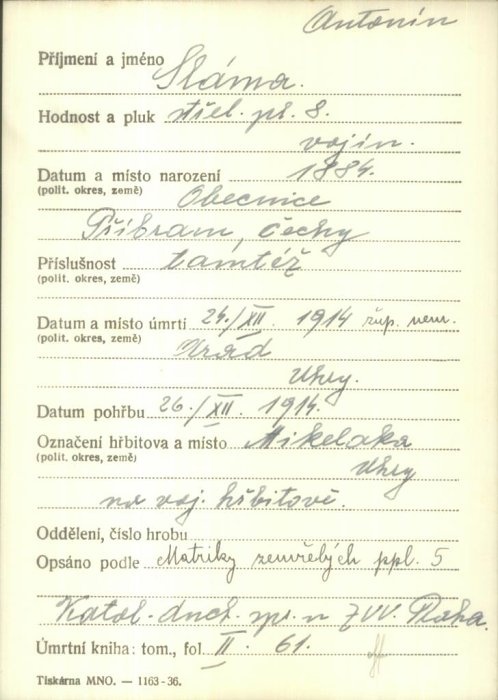 Antonín
Příjmení a jméno Sláma.
Hodnost a pluk střel. pl. 8.
vojín.
Datum a místo narození 1884.
(polit. okres, země)
Obecnice
Příbram, Čechy
Příslušnost tamtéž
(polit. okres, země)
Datum a místo úmrtí 24./XII. 1914 žup. nem.
(polit. okres, země)
Arad
Uhry.
Datum pohřbu 26./XII. 1914.
Označení hřbitova a místo Mikelaka
(polit. okres, země)
Uhry
na voj. hřbitově.
Oddělení, číslo hrobu
Opsáno podle Matriky zemřelých ppl. 5
Katol. duch. spr. u ZVV. Praha.
Úmrtní kniha: tom., fol. II. 61.
Tiskárna MNO. — 1163-36.